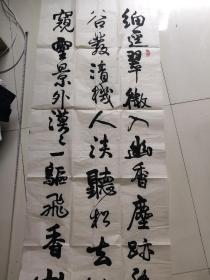 細逕翠微入幽香塵跡
谷發清機人淡聽松去
窺靈景外漠々一驅飛香